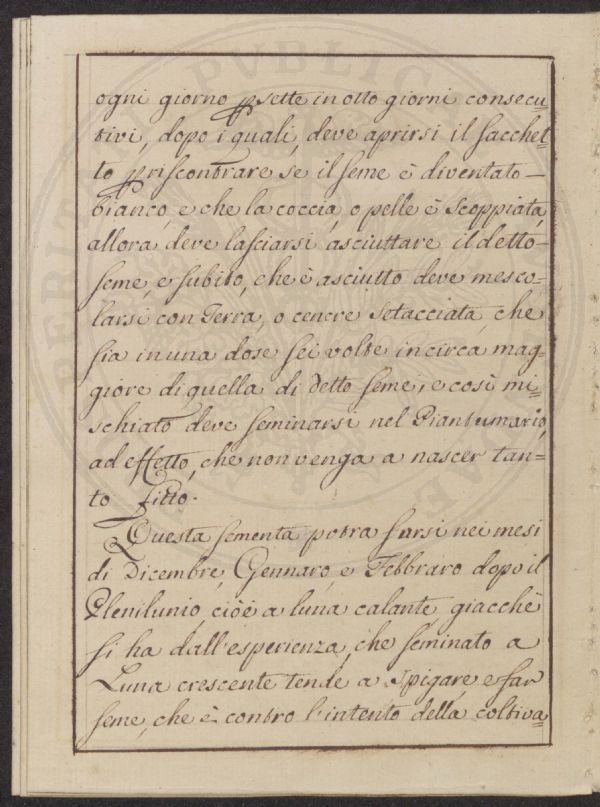 ogni giorno p sette in otto giorni consecu=
tivi, dopo i quali, deve aprirsi il sacchet=
to p riscontrare se il seme è diventato
bianco, e che la coccia, o pelle è scoppiata,
allora deve lasciarsi asciuttare il detto
seme, e subito, che è asciutto deve mesco=
larsi con Terra, o cenere setacciata, che
sia in una dose sei volte incirca mag=
giore di quella di detto seme, e così mi=
schiato deve seminarsi nel Piantumario,
ad effetto, che non venga a nascer tan=
to fitto.
Questa sementa potra farsi nei mesi
di Dicembre, Gennaro, e Febbraro dopo il
Plenilunio, cioè a luna calante, giacchè
si ha dall'esperienza, che seminato a
Luna crescente tende a spigare, e far
seme, che è contro l'intento della coltiva=